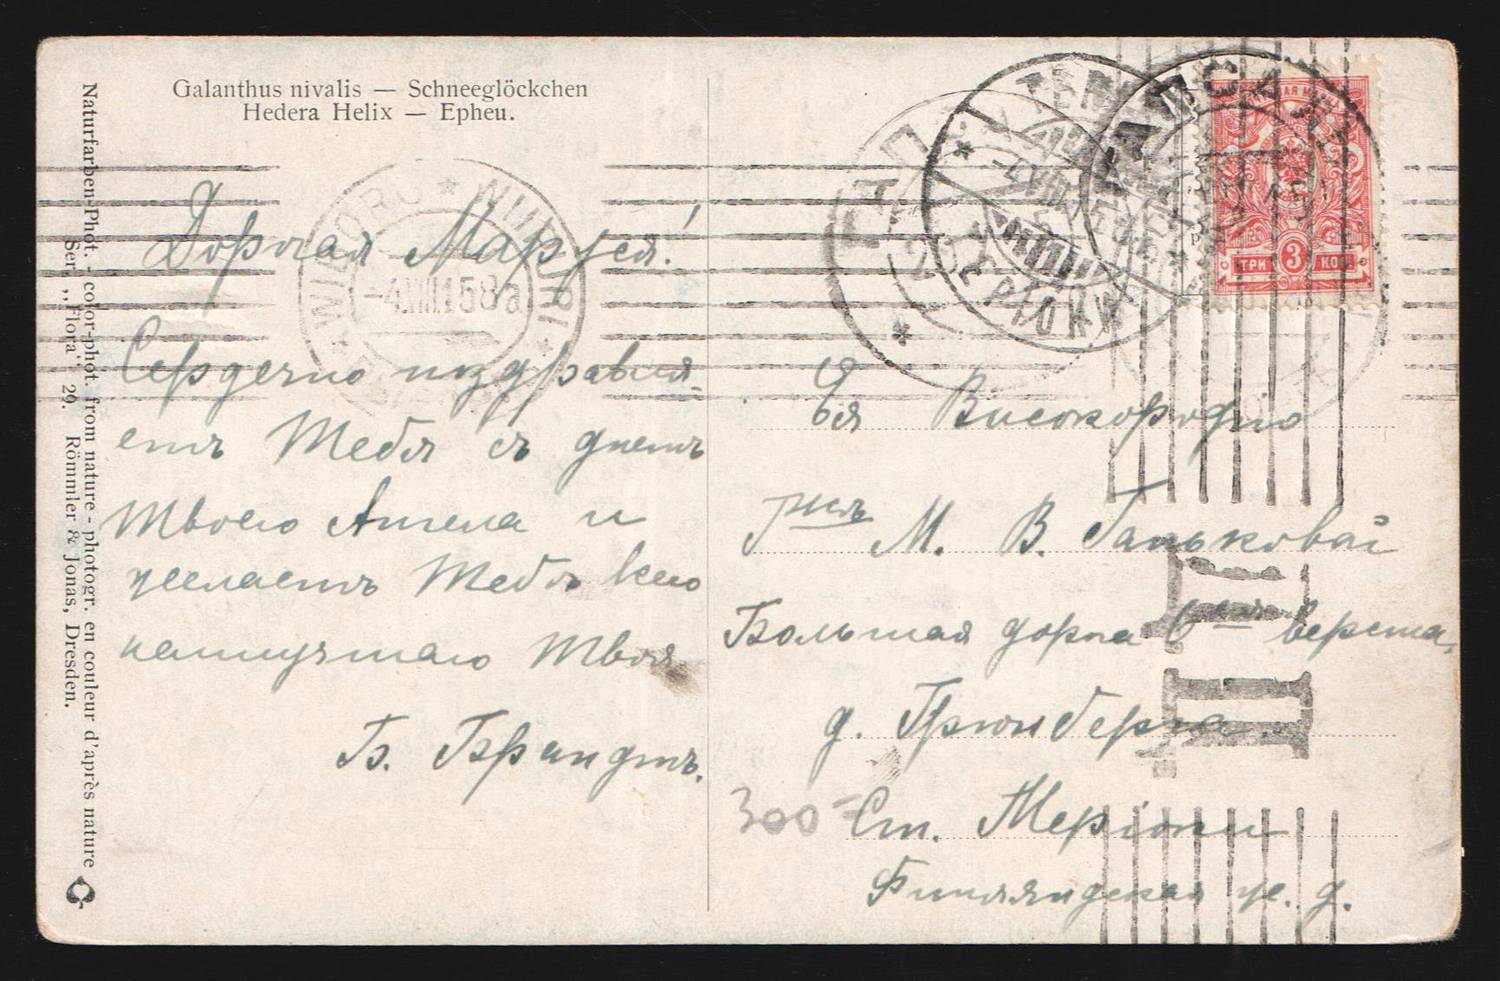 Galanthus nivalis — Schneeglöckchen
Hedera Helix — Epheu.
Naturfarben-Phot. - color-phot. from nature - photogr. en couleur d'après nature
Ser. „Flora“ 29. Römmler & Jonas, Dresden.
Дорогая Маруся!
Сердечно поздравля-
етъ Тебя съ днемъ
Твоего Ангела и
желаетъ Тебѣ всего
наилучшаго Твоя
Б. Брандтъ.
WIBORG * WIIPURI *
-4.VIII.15 8a
TERIJOKI
ТРИ 3 КОП
Ея Высокородію
М. В. Ганьковой
Большая дорога 6ая верста,
д. Грюнберга.
300=
Ст. Теріоки
Финляндская ж. д.